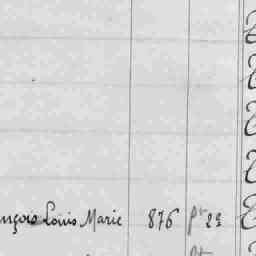 nçois Louis Marie 876 pt 22